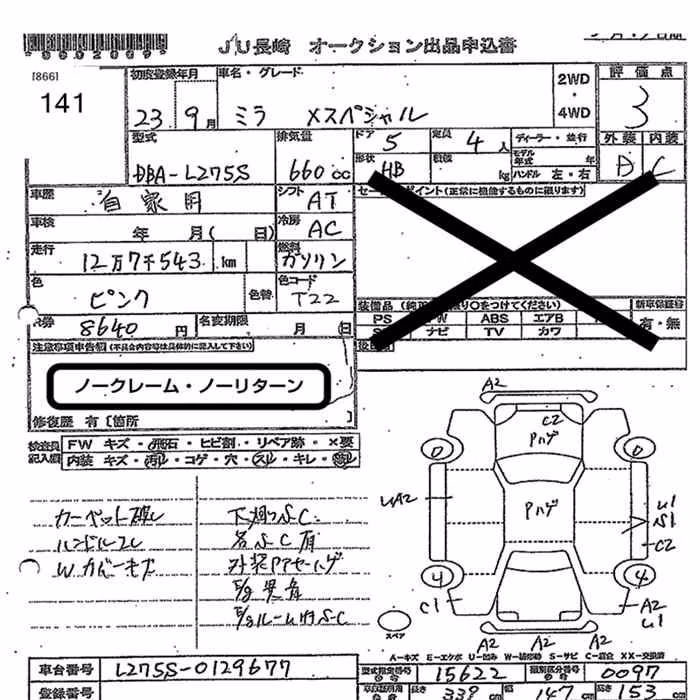 JU長崎 オークション出品申込書
[866]
141
初度登録年月 車名・グレード 2WD ・ 4WD 評価点
23 9月 ミラ Xスペシャル 3
外装 内装
D C
型式 排気量 ドア 定員 ディーラー・並行
DBA-L275S 660cc 5 4人
形状 HB 積載 kg モデル年式 年
ハンドル 左・右
車歴 自家用 シフト AT
ポイント(正常に機能するものに限ります)
車検 年 月( 日) 冷房 AC
走行 12万7千543km 燃料 ガソリン
色 ピンク 色替 色コード T22
装備品 新車保証書
PS ABS エアB
ナビ TV カワ 有・無
8640円 名変期限 月 日
注意事項申告欄(不具合内容等は具体的に記入して下さい)
ノークレーム・ノーリターン
修復歴 有〔箇所 〕
検査員記入欄
FW キズ・飛石・ヒビ割・リペア跡・×要
内装 キズ・汚れ・コゲ・穴・スレ・キレ・
カーペット破レ 下廻りS.C.
ハンドルスレ 各S.C有
Wカバーキズ 外装PPセーハゲ
E/g異音
E/gルーム内S.C
A2
C2
Pハゲ
0 0
UA2 Pハゲ U1
S1
C2
4 4
C1 A2
U1
スペア A2 A2 A2
A-キズ E-エクボ U-凹み W-補修跡 S-サビ C-腐食 XX-交換済
車台番号 L275S-0129677
型式指定番号 15622 類別区分番号 0097
登録番号
長さ 339cm 幅 147cm 高さ 153cm